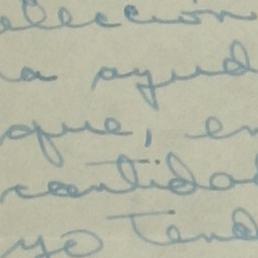 elección
a ayud
que, en
cantidad
yo tend